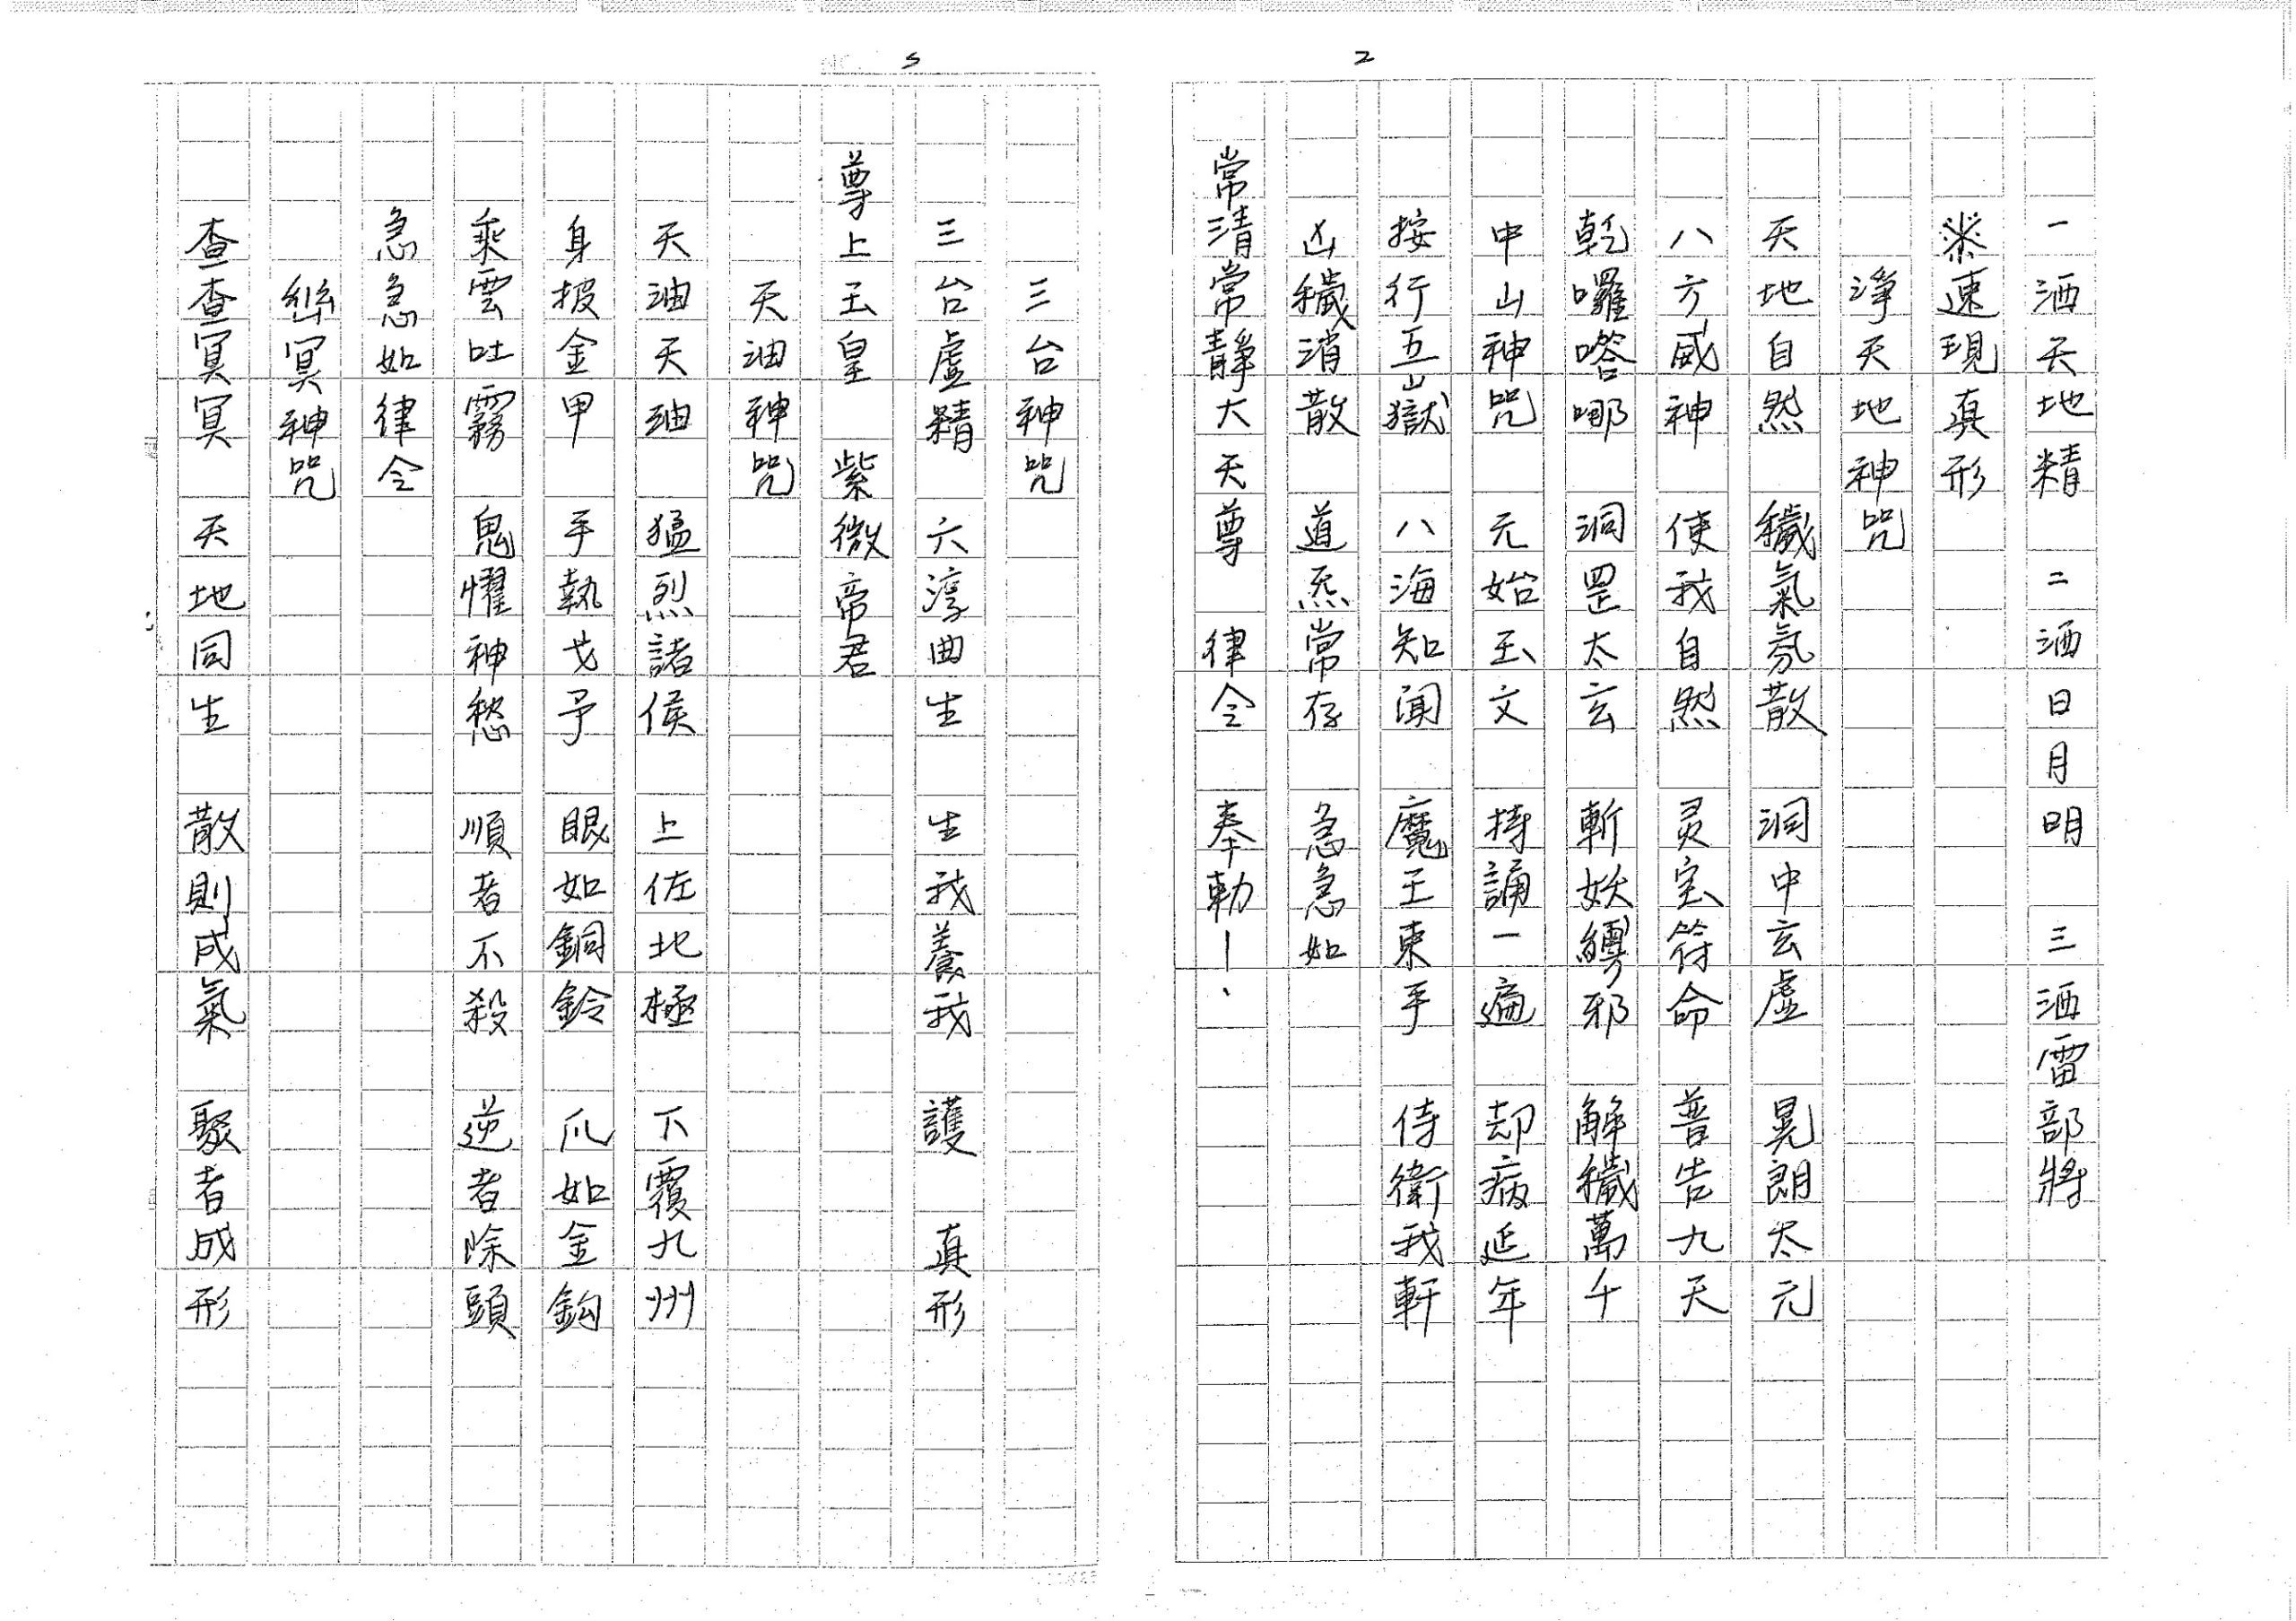 2
一洒天地精 二洒日月明 三洒雷部將
速現真形
淨天地神咒
天地自然 穢氣氛散 洞中玄虛 晃朗太元
八方威神 使我自然 灵宝符命 普告九天
乾囉嗒哪 洞罡太玄 斬妖縛邪 解穢萬千
中山神咒 元始玉文 持誦一遍 却病延年
按行五嶽 八海知闻 魔王束手 侍衛我軒
凶穢消散 道炁常存 急急如
常清常靜大天尊 律令 奉勅
5
三台神咒
三台虛精 六淳曲生 生我養我 護 真形
尊上玉皇 紫微帝君
天油神咒
天油天油 猛烈諸侯 上佐北極 下覆九州
身披金甲 手執戈予 眼如銅鈴 爪如金鈎
乘雲吐霧 鬼懼神愁 順者不殺 逆者除頭
急急如律令
冥神咒
查查冥冥 天地同生 散則成氣 聚者成形